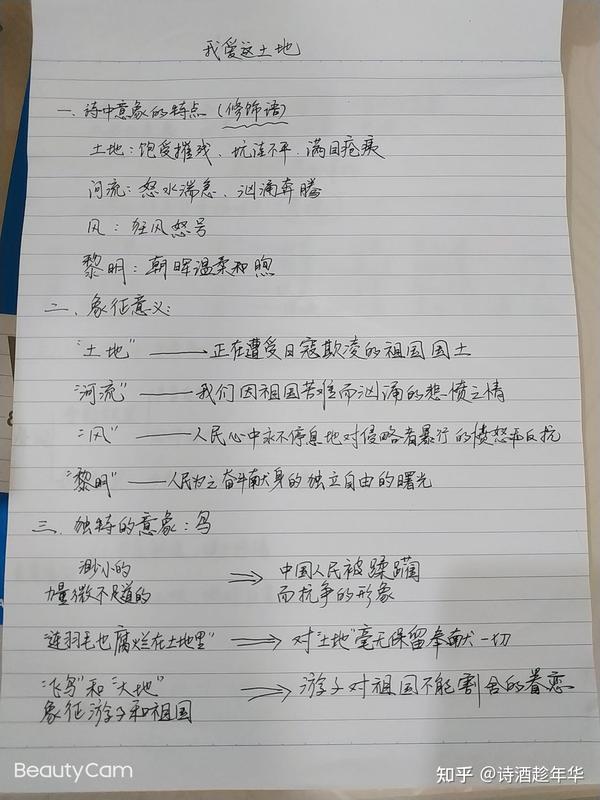 我爱这土地
一、诗中意象的特点（修饰语）
土地：饱受摧残、坑洼不平、满目疮痍
河流：怒水湍急、汹涌奔腾
风：狂风怒号
黎明：朝晖温柔和煦
二、象征意义：
"土地"——正在遭受日寇欺凌的祖国国土
"河流"——我们因祖国苦难而汹涌的悲愤之情
"风"——人民心中永不停息地对侵略者暴行的愤怒和反抗
"黎明"——人民为之奋斗献身的独立自由的曙光
三、独特的意象：鸟
渺小的
力量微不足道的 ⇒ 中国人民被蹂躏
而抗争的形象
"连羽毛也腐烂在土地里" ⇒ 对"土地"毫无保留奉献一切
"飞鸟"和"大地" ⇒ 游子对祖国不能割舍的眷恋
象征游子和祖国
BeautyCam
知乎 @诗酒趁年华